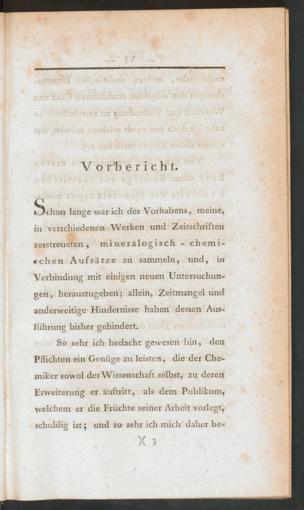 Vorbericht.
Schon lange war ich des Vorhabens, meine,
in verschiedenen Werken und Zeitschriften
zerstreueten, mineralogisch-chemi-
schen Aufsätze zu sammeln, und, in
Verbindung mit einigen neuen Untersuchun-
gen, herauszugeben; allein, Zeitmangel und
anderweitige Hindernisse haben dessen Aus-
führung bisher gehindert.
So sehr ich bedacht gewesen bin, den
Pflichten ein Genüge zu leisten, die der Che-
miker sowol der Wissenschaft selbst, zu deren
Erweiterung er auftritt, als dem Publikum,
welchem er die Früchte seiner Arbeit vorlegt,
schuldig ist; und so sehr ich mich daher be-
)( 3